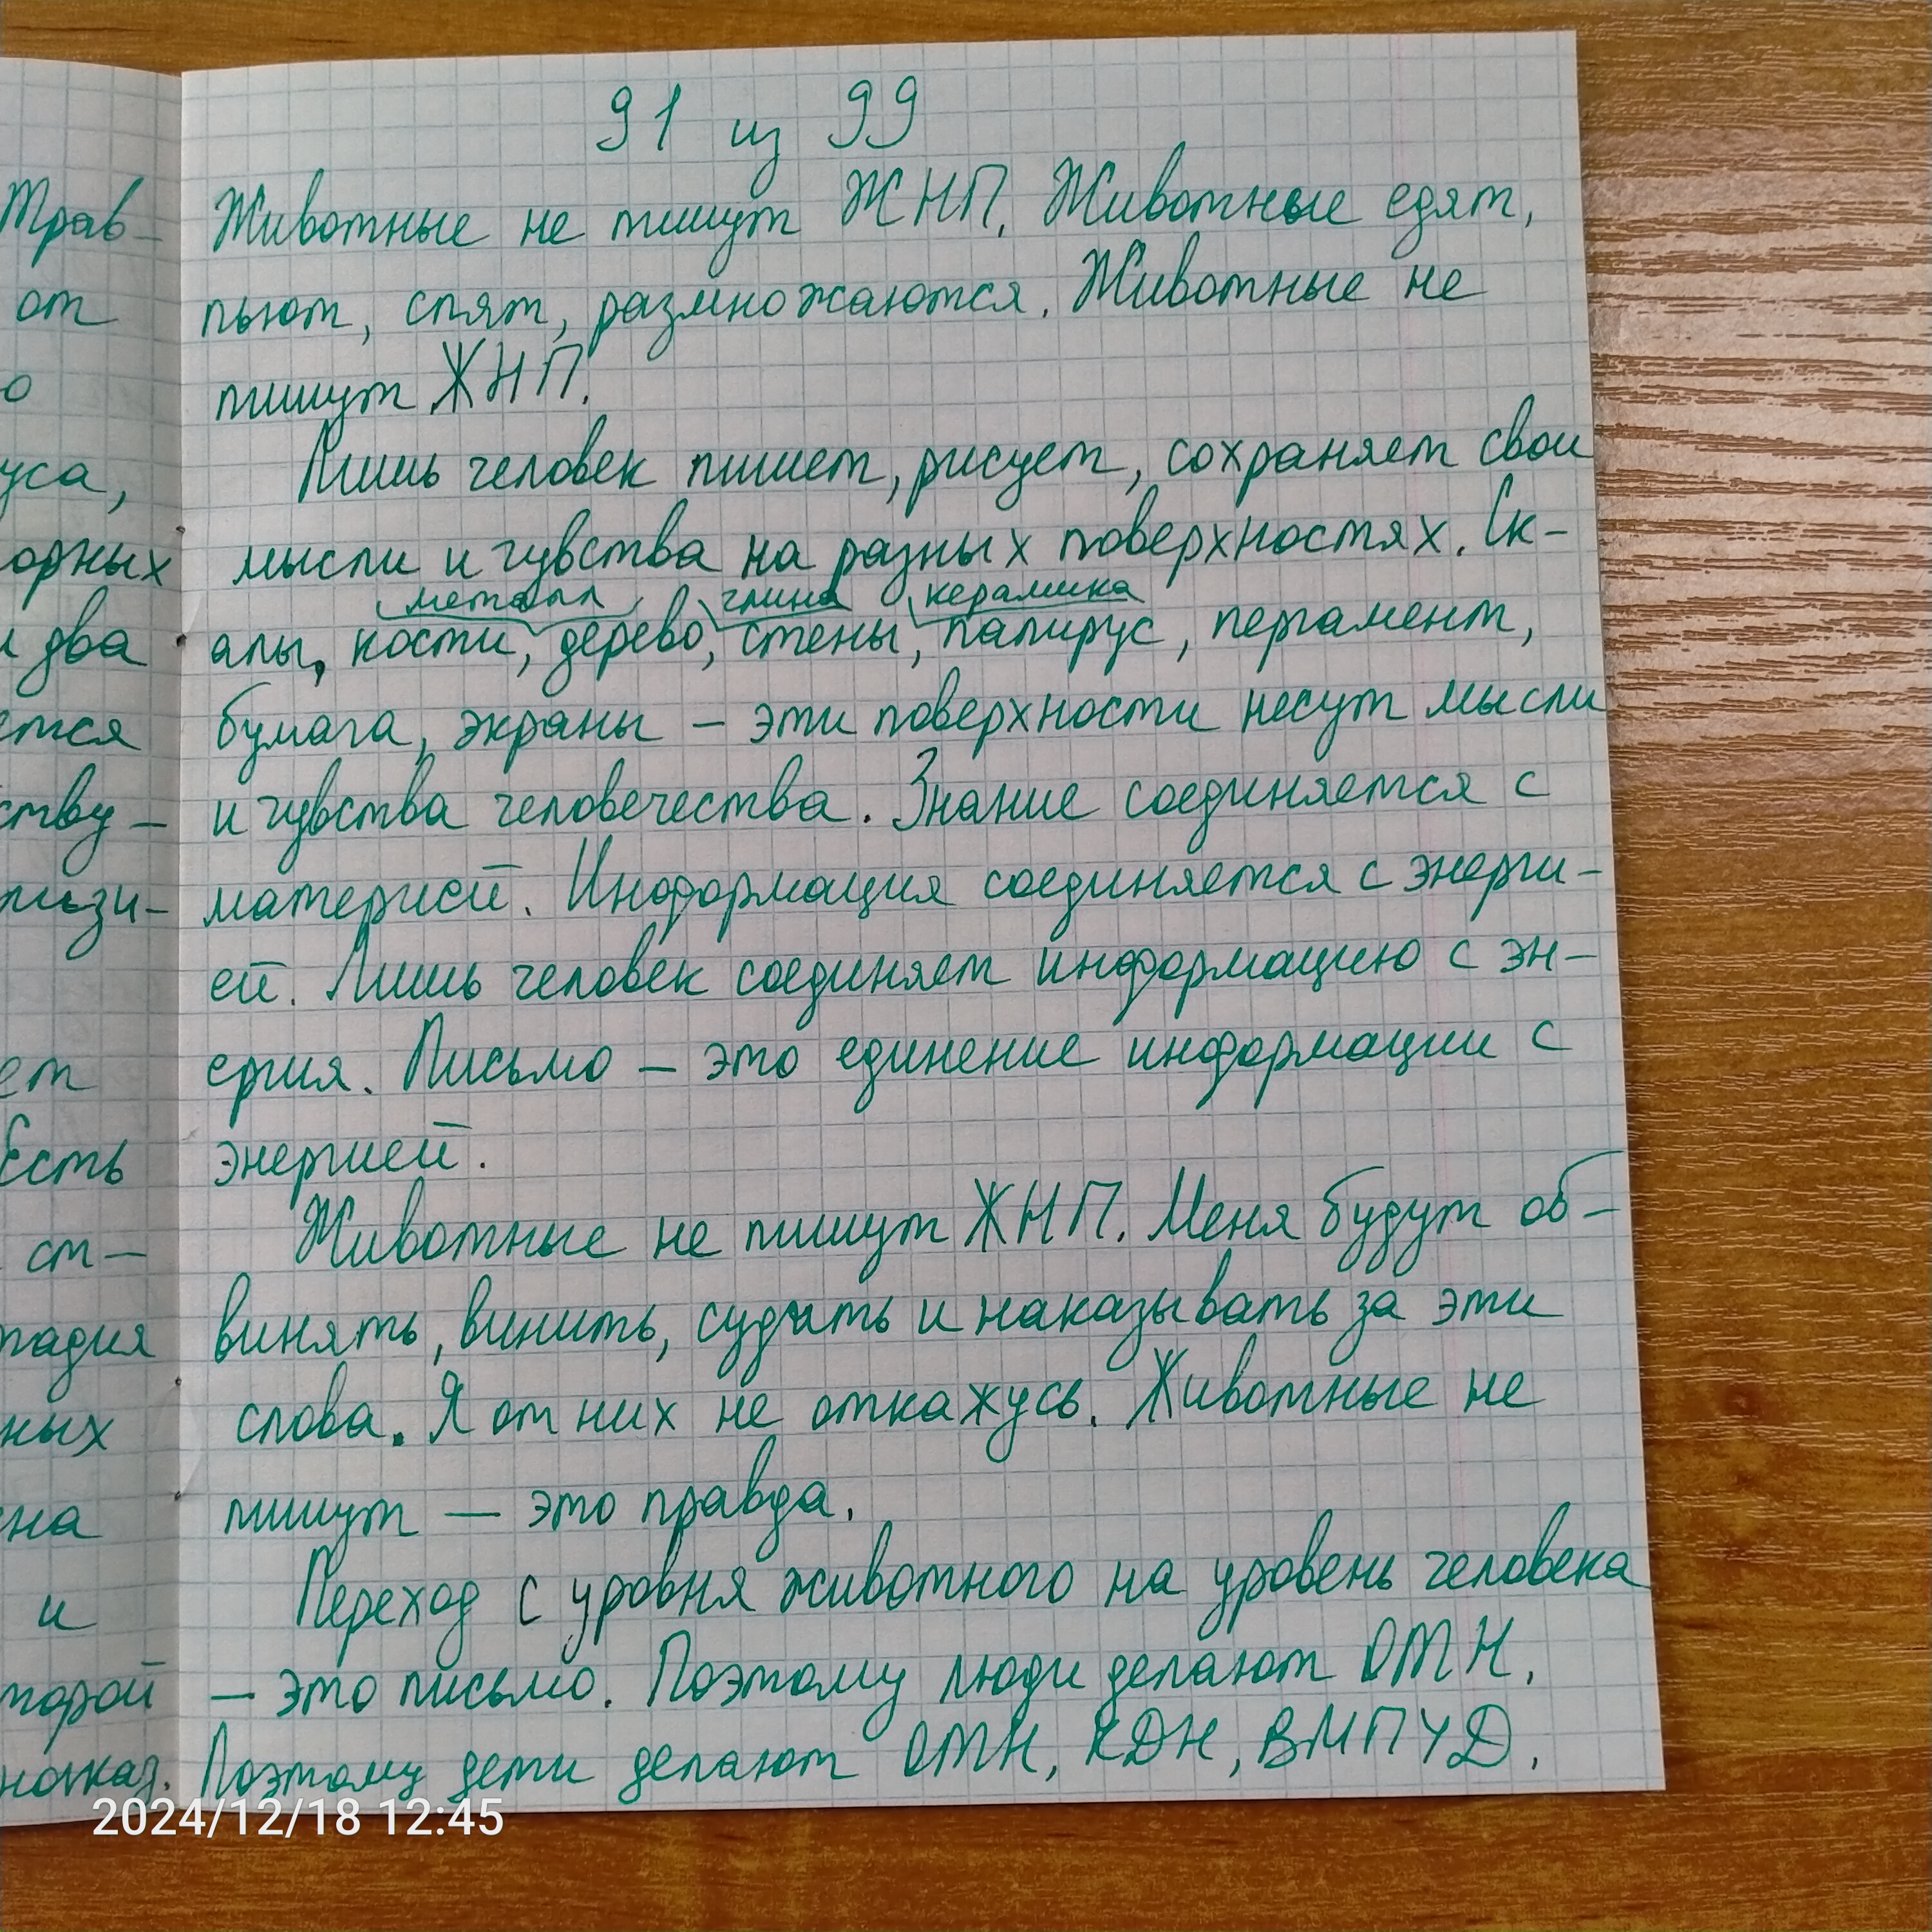 91 из 99
Животные не пишут ЖНП. Животные едят,
пьют, спят, размножаются. Животные не
пишут ЖНП.
Лишь человек пишет, рисует, сохраняет свои
мысли и чувства на разных поверхностях. Ск-
металл, глина керамика
алы, кости, дерево, стены, папирус, пергамент,
бумага, экраны – эти поверхности несут мысли
и чувства человечества. Знание соединяется с
материей. Информация соединяется с энерги-
ей. Лишь человек соединяет информацию с эн-
ергия. Письмо – это единение информации с
энергией.
Животные не пишут ЖНП. Меня будут об-
винять, винить, судить и наказывать за эти
слова. Я от них не откажусь. Животные не
пишут — это правда.
Переход с уровня животного на уровень человека
– это письмо. Поэтому люди делают ОМН.
Поэтому дети делают ОМН, КДН, ВМПУД.
Трав-
от
о
уса,
орных
и два
ется
ству-
ет
Есть
ст-
тадия
ных
на
и
торой
2024/12/18 12:45